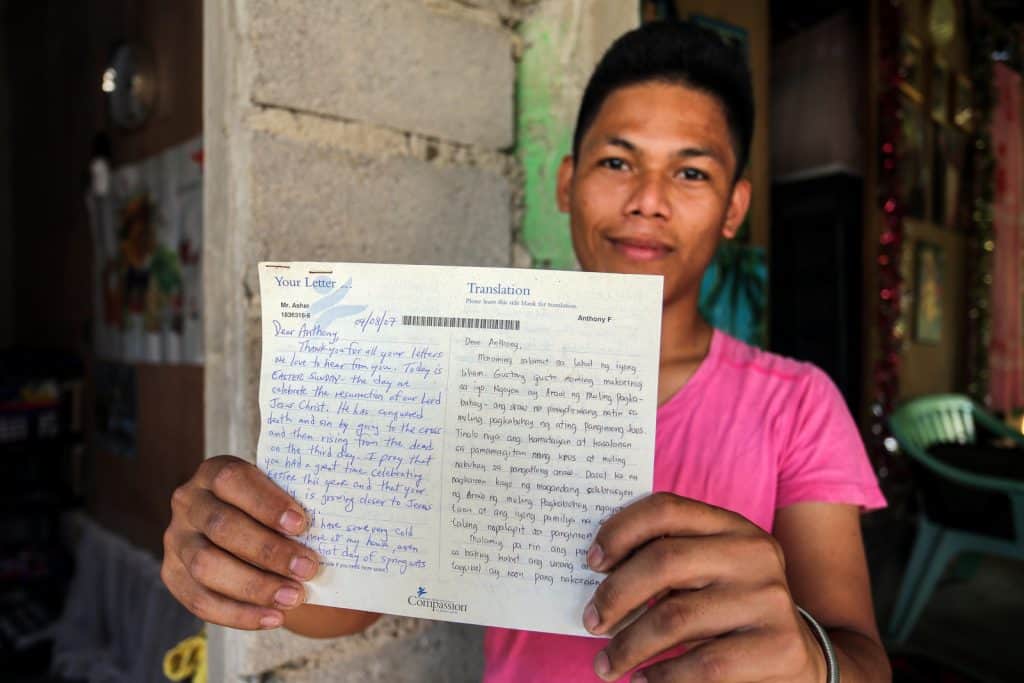 Your Letter ...
Mr. Asher
1836316-6
04/08/07
Dear Anthony,
Thank you for all your letters
we love to hear from you. Today is
EASTER SUNDAY - the day we
celebrate the resurrection of our Lord
Jesus Christ. He has conquered
death and sin by going to the cross
and then rising from the dead
on the third day. I pray that
you had a great time celebrating
Easter this year and that your
is growing closer to Jesus
have some very cold
here at my house, even
first day of spring was
Translation
Please leave this side blank for translation.
Anthony F
Dear Anthony,
Maraming salamat sa lahat ng iyong
liham. Gustong gusto naming makarinig
sa iyo. Ngayon ay Araw ng muling Pagka-
buhay - ang araw na pinagdiriwang natin sa
muling pagkabuhay ng ating Panginoong Jesus.
Tinalo niya ang kamatayan at kasalanan
sa pamamagitan nang krus at muling
nabuhay sa pangatlong araw. Dasal ko na
nagkaroon kayo ng magandang selebrasyon
ng Araw ng muling Pagkabuhay ngayong
taon at ang iyong pamilya na
laling napalapit sa panginoon
Malamig pa rin ang
sa bahay kahit ang unang
tagsibol ay noon pang
Compassion